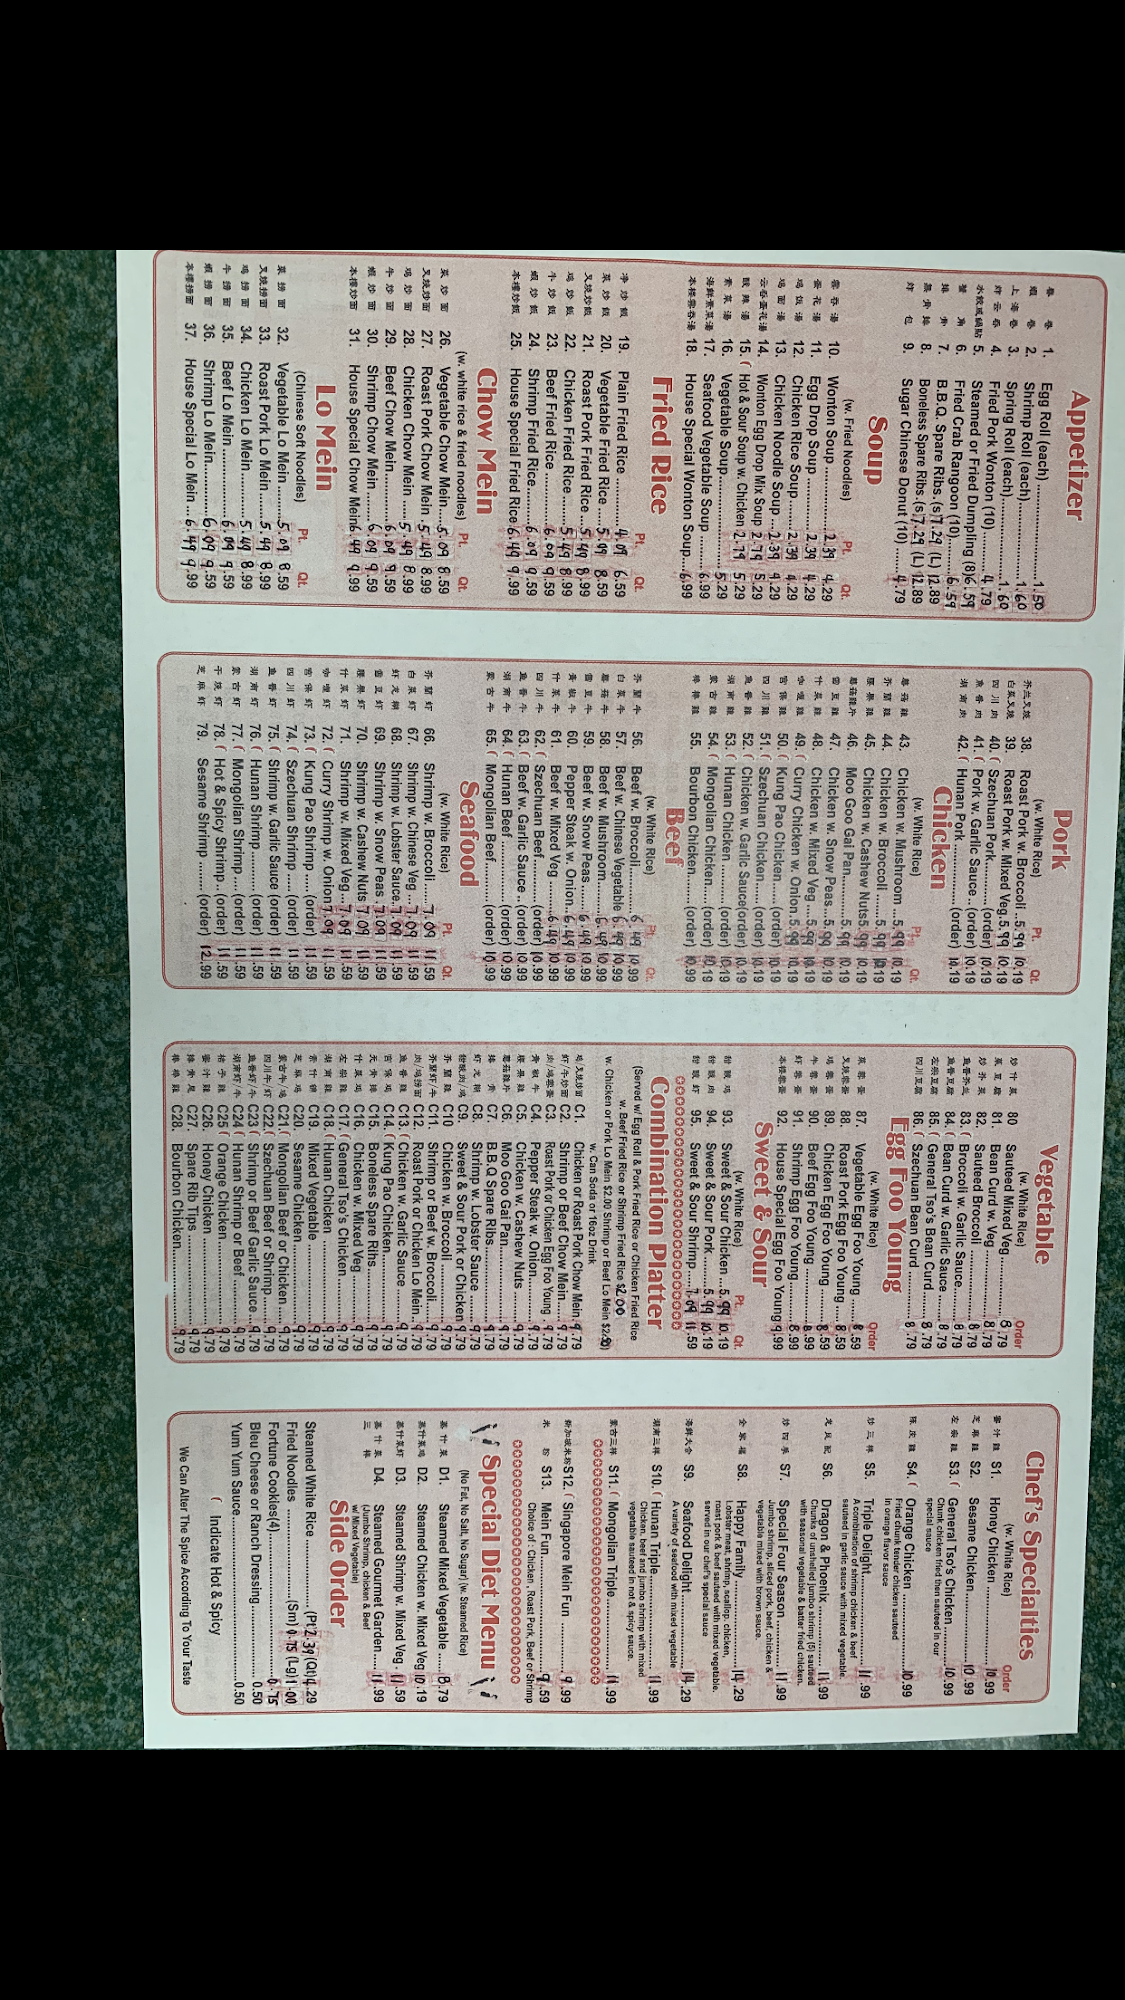 Appetizer
春 卷 1. Egg Roll (each) 1.50
蝦 卷 2. Shrimp Roll (each) 1.60
上 海 卷 3. Spring Roll (each) 1.60
炸 云 吞 4. Fried Pork Wonton (10) 4.79
水餃或鍋貼 5. Steamed or Fried Dumpling (8) 6.59
蟹 角 6. Fried Crab Rangoon (10) 6.59
排 骨 7. B.B.Q. Spare Ribs. (s) 7.29 (L) 12.89
無 骨 排 8. Boneless Spare Ribs. (s) 7.29 (L) 12.89
炸 包 9. Sugar Chinese Donut (10) 4.79
Soup
(w. Fried Noodles) Pt. Qt.
雲 吞 湯 10. Wonton Soup 2.39 4.29
蛋 花 湯 11. Egg Drop Soup 2.39 4.29
鸡 饭 湯 12. Chicken Rice Soup 2.39 4.29
鸡 面 湯 13. Chicken Noodle Soup 2.39 4.29
云吞蛋花湯 14. Wonton Egg Drop Mix Soup 2.79 5.29
酸 辣 湯 15. ( Hot & Sour Soup w. Chicken 2.79 5.29
素 菜 湯 16. Vegetable Soup 5.29
海鲜素菜湯 17. Seafood Vegetable Soup 6.99
本樓雲吞湯 18. House Special Wonton Soup 6.99
Fried Rice
Pt. Qt.
净 炒 飯 19. Plain Fried Rice 4.09 6.59
菜 炒 飯 20. Vegetable Fried Rice 5.09 8.59
叉烧炒飯 21. Roast Pork Fried Rice 5.49 8.99
鸡 炒 飯 22. Chicken Fried Rice 5.49 8.99
牛 炒 飯 23. Beef Fried Rice 6.09 9.59
蝦 炒 飯 24. Shrimp Fried Rice 6.09 9.59
本樓炒飯 25. House Special Fried Rice 6.49 9.99
Chow Mein
(w. white rice & fried noodles) Pt. Qt.
菜 炒 面 26. Vegetable Chow Mein 5.09 8.59
叉烧炒面 27. Roast Pork Chow Mein 5.49 8.99
鸡 炒 面 28. Chicken Chow Mein 5.49 8.99
牛 炒 面 29. Beef Chow Mein 6.09 9.59
蝦 炒 面 30. Shrimp Chow Mein 6.09 9.59
本樓炒面 31. House Special Chow Mein 6.49 9.99
Lo Mein
(Chinese Soft Noodles) Pt. Qt.
菜 捞 面 32. Vegetable Lo Mein 5.09 8.59
叉烧捞面 33. Roast Pork Lo Mein 5.49 8.99
鸡 捞 面 34. Chicken Lo Mein 5.49 8.99
牛 捞 面 35. Beef Lo Mein 6.09 9.59
蝦 捞 面 36. Shrimp Lo Mein 6.09 9.59
本樓捞面 37. House Special Lo Mein 6.49 9.99
Pork
(w. White Rice) Pt. Qt.
芥兰叉烧 38. Roast Pork w. Broccoli 5.99 10.19
白菜叉烧 39. Roast Pork w. Mixed Veg. 5.99 10.19
四 川 肉 40. ( Szechuan Pork (order) 10.19
鱼 香 肉 41. ( Pork w. Garlic Sauce (order) 10.19
湖 南 肉 42. ( Hunan Pork (order) 10.19
Chicken
(w. White Rice) Pt. Qt.
蘑 菇 雞 43. Chicken w. Mushroom 5.99 10.19
芥 蘭 雞 44. Chicken w. Broccoli 5.99 10.19
腰 果 雞 45. Chicken w. Cashew Nuts 5.99 10.19
蘑菇雞片 46. Moo Goo Gai Pan 5.99 10.19
雪 豆 雞 47. Chicken w. Snow Peas 5.99 10.19
什 菜 雞 48. Chicken w. Mixed Veg 5.99 10.19
咖 喱 雞 49. ( Curry Chicken w. Onion 5.99 10.19
宫 保 雞 50. ( Kung Pao Chicken (order) 10.19
四 川 雞 51. ( Szechuan Chicken (order) 10.19
鱼 香 雞 52. ( Chicken w. Garlic Sauce (order) 10.19
湖 南 雞 53. ( Hunan Chicken (order) 10.19
蒙 古 雞 54. ( Mongolian Chicken (order) 10.19
棒 棒 雞 55. Bourbon Chicken (order) 10.99
Beef
(w. White Rice) Pt. Qt.
芥 蘭 牛 56. Beef w. Broccoli 6.49 10.99
白 菜 牛 57. Beef w. Chinese Vegetable 6.49 10.99
蘑 菇 牛 58. Beef w. Mushroom 6.49 10.99
雪 豆 牛 59. Beef w. Snow Peas 6.49 10.99
青 椒 牛 60. Pepper Steak w. Onion 6.49 10.99
什 菜 牛 61. Beef w. Mixed Veg 6.49 10.99
四 川 牛 62. ( Szechuan Beef (order) 10.99
鱼 香 牛 63. ( Beef w. Garlic Sauce (order) 10.99
湖 南 牛 64. ( Hunan Beef (order) 10.99
蒙 古 牛 65. ( Mongolian Beef (order) 10.99
Seafood
(w. White Rice) Pt. Qt.
芥 蘭 虾 66. Shrimp w. Broccoli 7.09 11.59
白 菜 虾 67. Shrimp w. Chinese Veg 7.09 11.59
虾 龙 糊 68. Shrimp w. Lobster Sauce 7.09 11.59
雪 豆 虾 69. Shrimp w. Snow Peas 7.09 11.59
腰 果 虾 70. Shrimp w. Cashew Nuts 7.09 11.59
什 菜 虾 71. Shrimp w. Mixed Veg 7.09 11.59
咖 喱 虾 72. ( Curry Shrimp w. Onion 7.09 11.59
宫 保 虾 73. ( Kung Pao Shrimp (order) 11.59
四 川 虾 74. ( Szechuan Shrimp (order) 11.59
鱼 香 虾 75. ( Shrimp w. Garlic Sauce (order) 11.59
湖 南 虾 76. ( Hunan Shrimp (order) 11.59
蒙 古 虾 77. ( Mongolian Shrimp (order) 11.59
干 烧 虾 78. ( Hot & Spicy Shrimp (order) 11.59
芝 麻 虾 79. Sesame Shrimp (order) 12.99
Vegetable
(w. White Rice) Order
炒 什 菜 80 Sauteed Mixed Veg 8.79
菜 豆 腐 81. Bean Curd w. Veg 8.79
炒 芥 菜 82. Sauteed Broccoli 8.79
鱼香芥兰 83. ( Broccoli w. Garlic Sauce 8.79
鱼香豆腐 84. ( Bean Curd w. Garlic Sauce 8.79
左宗豆腐 85. ( General Tso's Bean Curd 8.79
四川豆腐 86. ( Szechuan Bean Curd 8.79
Egg Foo Young
(w. White Rice) Order
菜 蓉 蛋 87. Vegetable Egg Foo Young 8.59
叉烧蓉蛋 88. Roast Pork Egg Foo Young 8.59
鸡 蓉 蛋 89. Chicken Egg Foo Young 8.59
牛 蓉 蛋 90. Beef Egg Foo Young 8.99
虾 蓉 蛋 91. Shrimp Egg Foo Young 8.99
本樓蓉蛋 92. House Special Egg Foo Young 9.99
Sweet & Sour
(w. White Rice) Pt. Qt.
甜 酸 鸡 93. Sweet & Sour Chicken 5.99 10.19
甜 酸 肉 94. Sweet & Sour Pork 5.99 10.19
甜 酸 虾 95. Sweet & Sour Shrimp 7.09 11.59
Combination Platter
(Served w/ Egg Roll & Pork Fried Rice or Chicken Fried Rice
w. Beef Fried Rice or Shrimp Fried Rice $2.00
w. Chicken or Pork Lo Mein $2.00 Shrimp or Beef Lo Mein
w. Can Soda or 16oz Drink
鸡/叉烧炒面 C1. Chicken or Roast Pork Chow Mein 9.79
虾/牛炒面 C2. Shrimp or Beef Chow Mein 9.79
肉/鸡蓉蛋 C3. Roast Pork or Chicken Egg Foo Young 9.79
青 椒 牛 C4. Pepper Steak w. Onion 9.79
腰 果 雞 C5. Chicken w. Cashew Nuts 9.79
蘑菇雞片 C6. Moo Goo Gai Pan 9.79
排 骨 C7. B.B.Q Spare Ribs 9.79
虾 龙 糊 C8. Shrimp w. Lobster Sauce 9.79
甜酸肉/鸡 C9. Sweet & Sour Pork or Chicken 9.79
芥 蘭 雞 C10 Chicken w. Broccoli 9.79
芥蘭虾/牛 C11. Shrimp or Beef w. Broccoli 9.79
肉/鸡捞面 C12. Roast Pork or Chicken Lo Mein 9.79
鱼 香 雞 C13. ( Chicken w. Garlic Sauce 9.79
宫 保 鸡 C14. ( Kung Pao Chicken 9.79
无 骨 排 C15. Boneless Spare Ribs 9.79
什 菜 鸡 C16. Chicken w. Mixed Veg 9.79
左 宗 雞 C17. ( General Tso's Chicken 9.79
湖 南 雞 C18. ( Hunan Chicken 9.79
素 什 锦 C19. Mixed Vegetable 9.79
芝 麻 鸡 C20. Sesame Chicken 9.79
蒙古牛/鸡 C21. ( Mongolian Beef or Chicken 9.79
四川牛/虾 C22. ( Szechuan Beef or Shrimp 9.79
鱼香虾/牛 C23. ( Shrimp or Beef Garlic Sauce 9.79
湖南虾/牛 C24. ( Hunan Shrimp or Beef 9.79
桔 子 雞 C25. ( Orange Chicken 9.79
蜜 汁 雞 C26. Honey Chicken 9.79
排 骨 尾 C27. Spare Rib Tips 9.79
棒 棒 雞 C28. Bourbon Chicken 9.79
Chef's Specialties
(w. White Rice) Order
蜜 汁 雞 S1. Honey Chicken 10.99
芝 麻 雞 S2. Sesame Chicken 10.99
左 宗 雞 S3. ( General Tso's Chicken 10.99
Chunk chicken fried then sauteed in our
special sauce
陈 皮 雞 S4. ( Orange Chicken 10.99
Fried chunk tender chicken sauteed
in orange flavor sauce
炒 三 样 S5. Triple Delight 11.99
A combination of shrimp chicken & beef
sauteed in garlic sauce with mixed vegetable.
龙 凤 配 S6. Dragon & Phoenix 11.99
Chunks of unshelled jumbo shrimp (5) sauteed
with seasonal vegetable & batter fried chicken.
炒 四 季 S7. Special Four Season 11.99
Jumbo shrimp, sliced pork, beef, chicken &
vegetable mixed with brown sauce.
全 家 福 S8. Happy Family 14.29
Lobster meat, shrimp, scallop, chicken,
roast pork & beef sauteed with mixed vegetable,
served in our chef's special sauce
海鲜大全 S9. Seafood Delight 14.29
A variety of seafood with mixed vegetable
湖南三样 S10. ( Hunan Triple 11.99
Chicken, beef and jumbo shrimp with mixed
vegetable sauteed in not & spicy sauce.
蒙古三样 S11. ( Mongolian Triple 11.99
新加坡米粉 S12. ( Singapore Mein Fun 9.99
米 粉 S13. Mein Fun 9.59
Choice of : Chicken , Roast Pork, Beef or Shrimp
Special Diet Menu
(No Fat, No Salt, No Sugar) (w. Steamed Rice)
蒸 什 菜 D1. Steamed Mixed Vegetable 8.79
蒸什菜鸡 D2. Steamed Chicken w. Mixed Veg 10.19
蒸什菜虾 D3. Steamed Shrimp w. Mixed Veg 11.59
蒸 什 菜 三 样 D4. Steamed Gourmet Garden 11.99
(Jumbo Shrimp, chicken & Beef
w/ Mixed Vegetable)
Side Order
Steamed White Rice (Pt) 2.39 (Qt) 4.29
Fried Noodles (Sm) 0.75 (Lg) 1.00
Fortune Cookies(4) 0.75
Bleu Cheese or Ranch Dressing 0.50
Yum Yum Sauce 0.50
( Indicate Hot & Spicy
We Can Alter The Spice According To Your Taste